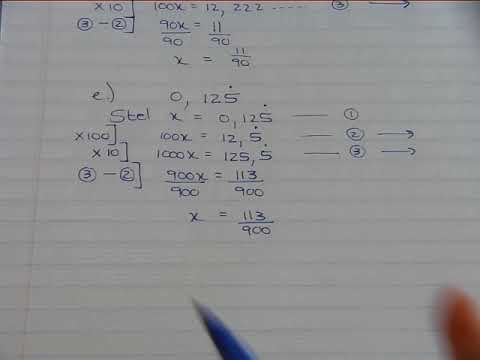 ×10] 100x = 12,222 ..... ③ →
③ − ②] 90x/90 = 11/90
x = 11/90
e.) 0,125̇
Stel x = 0,125̇ — ①
×100] 100x = 12,5̇ — ② →
×10] 1000x = 125,5̇ — ③ →
③ − ②] 900x/900 = 113/900
x = 113/900